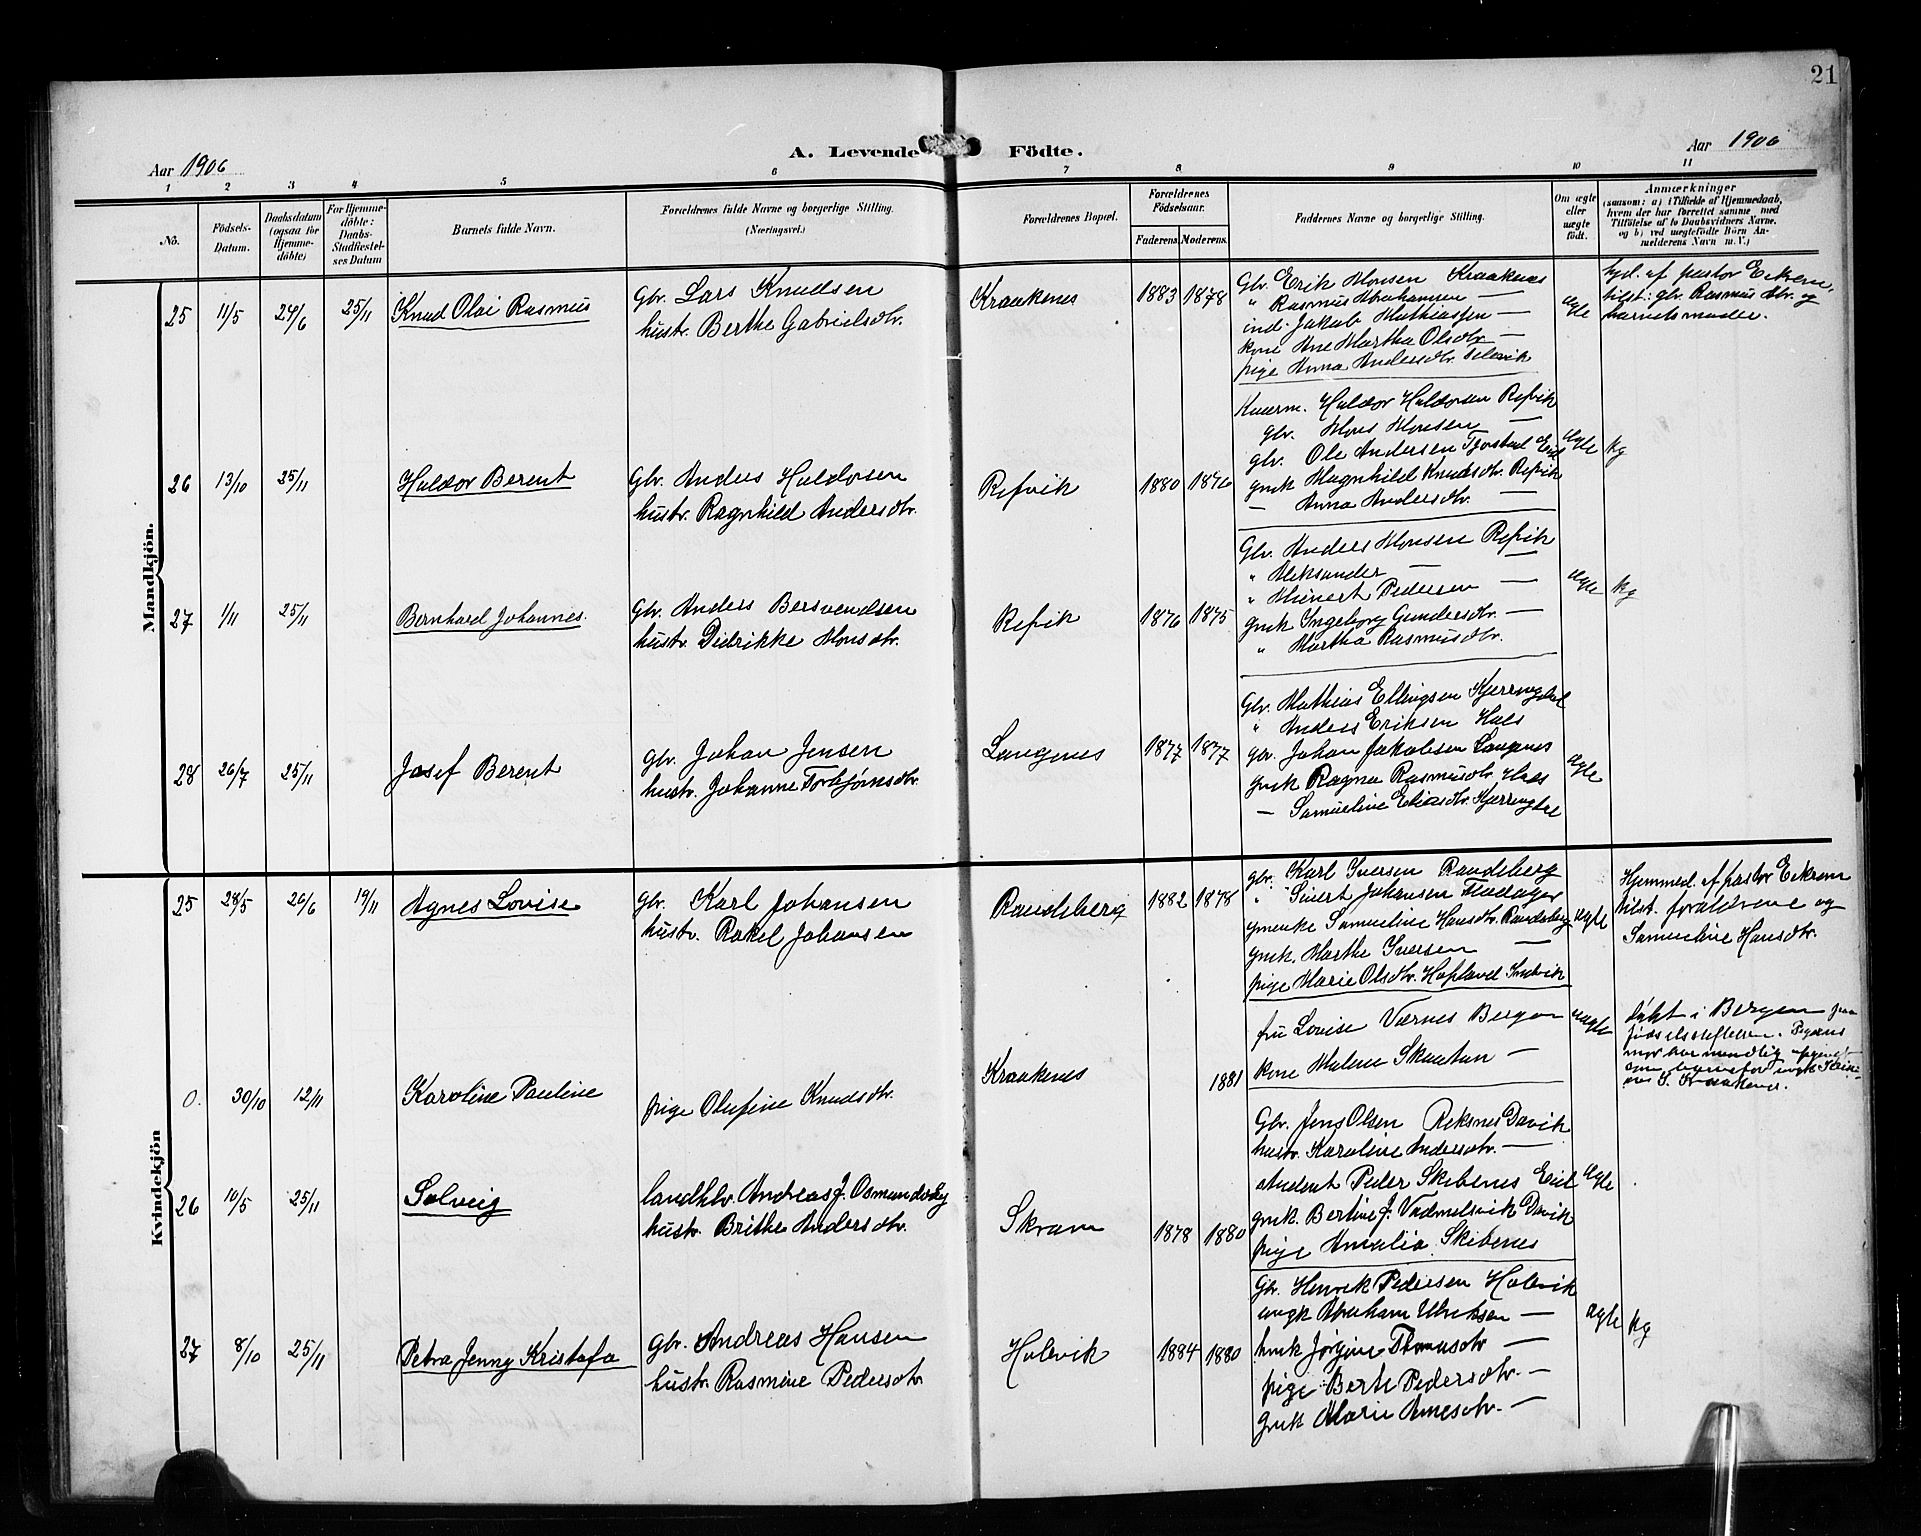 21
Aar 1906
A. Levende Födte.
Aar 1906
1 2 3 4 5 6 7 8 9 10 11
No.
Födsels-
Datum.
Daabsdatum
(ogsaa for
Hjemme-
döbte)
For Hjemme-
döbte:
Daabs-
Stadfæstel-
ses Datum
Barnets fulde Navn.
Forældrenes fulde Navne og borgerlige Stilling.
(Næringsvei.)
Forældrenes Bopæl.
Forældrenes
Födselsaar.
Faderens. Moderens.
Faddernes Navne og borgerlige Stilling.
Om ægte
eller
uægte
födt.
Anmærkninger
(saasom: a) i Tilfælde af Hjemmedaab,
hvem der har forrettet samme med
Tilföielse af to Daabsvidners Navne,
og b) ved uægtefödte Börn An-
melderens Navn m. V.)
Mandkjön.
25 11/5 24/6 25/11 Knud Olai Rasmus
Gbr. Lars Knudsen
hustr. Berthe Gabrielsdtr.
Kraakenes 1883 1878
Gbr. Erik Monsen Kraakenes
" Rasmus Abrahamsen —
ind. Jakob Mathiassen —
kone Ane Martha Olsdtr. —
pige Anna Andersdtr.
ægte
hjd. af pastor Eekren,
tilst: gbr. Rasmus Abr. og
barnets moder.
26 13/10 25/11 Haldor Berent
Gbr. Anders Haldorsen
hustr. Ragnhild Andersdtr.
Refvik 1880 1876
Kaarm. Haldor Haldorsen Refvik
gbr. Mons Monsen —
gbr. Ole Andersen Eid
gmk Magnhild Knudsdtr. Refvik
— Anna Andersdtr. —
ægte kg
27 1/11 25/11 Bernhard Johannes
Gbr. Anders Bersvendsen
hustr. Didrikke Monsdtr.
Refvik 1876 1875
Gbr. Anders Monsen Refvik
" Aleksander —
" Pedersen —
gmk Ingeborg Gundersdtr. —
" Martha Rasmusdtr.
ægte kg
28 26/7 25/11 Josef Berent
Gbr. Johan Jensen
hustr. Johanne Torbjørnsdtr.
Langenes 1877 1877
Gbr. Mathias Ellingsen Kjerringdal
" Anders Eriksen Hals
gbr. Johan Jakobsen Langenes
gmk Ragna Rasmusdtr. Hals
— Samueline Eliasdtr. Kjerringdal
ægte
Kvindekjön
25 28/5 26/6 19/11 Agnes Lovise
Gbr. Karl Johansen
hustr. Rakel Johansen
Raudeberg 1882 1878
gbr. Karl Iversen Raudeberg
" Sivert Johansen
gmenke Samueline Hansdtr. Raudeberg
gmk. Marthe Iversen —
pige Marie Olsdtr. Hopland
ægte
Hjemmed. af pastor Eekren
tilst. forældrene og
Samueline Hansdtr.
0. 30/10 12/11 Karoline Pauline
pige Olufine Knudsdtr.
Kraakenes 1881
fru Lovise Værnes Bergen
kone Malene —
uægte
døbt i Bergen paa
fødselsstiftelsen. Pigens
mor har mundtlig opgivet
som barnefar ungk.
Kraakenes.
26 10/5 25/11 Solveig
landhdlr. Andreas J. Osmundsvåg
hustr. Brithe Andersdtr.
Skram 1878 1880
Gbr. Jens Olsen Davik
hustr. Karoline Andersdtr. —
student Peder Skibenes Eid
gmk. Bertine J. Vedmelsvik Davik
pige Amalia Skibenes
ægte
27 8/10 25/11 Petra Jenny Kristofa
Gbr. Andreas Hansen
hustr. Rasmine Pedersdtr.
Holevik 1884 1880
Gbr. Henrik Pedersen Holevik
ungk Abraham Ulriksen —
hmk Jørgine Thomasdtr —
pige Berte Pedersdtr. —
Gmk Marie Arnesdtr. —
ægte kg